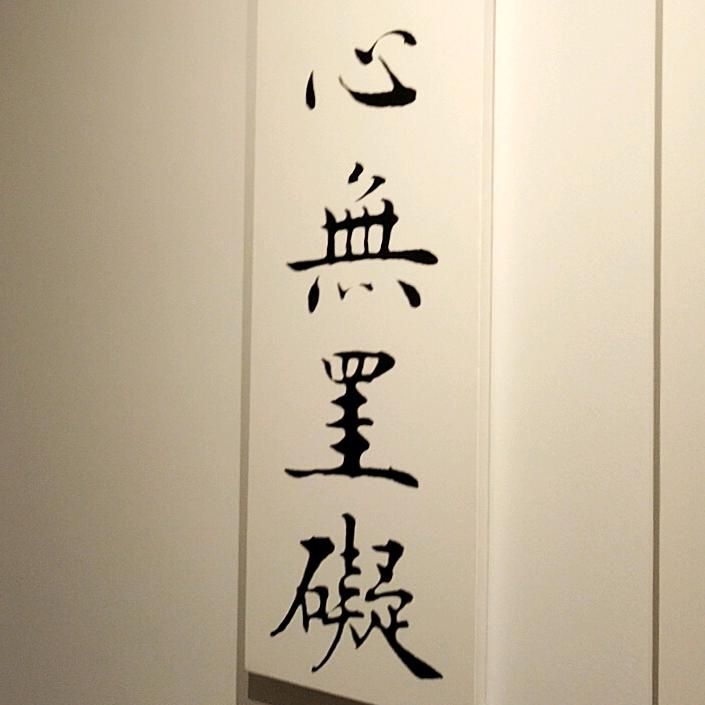 心無罣礙